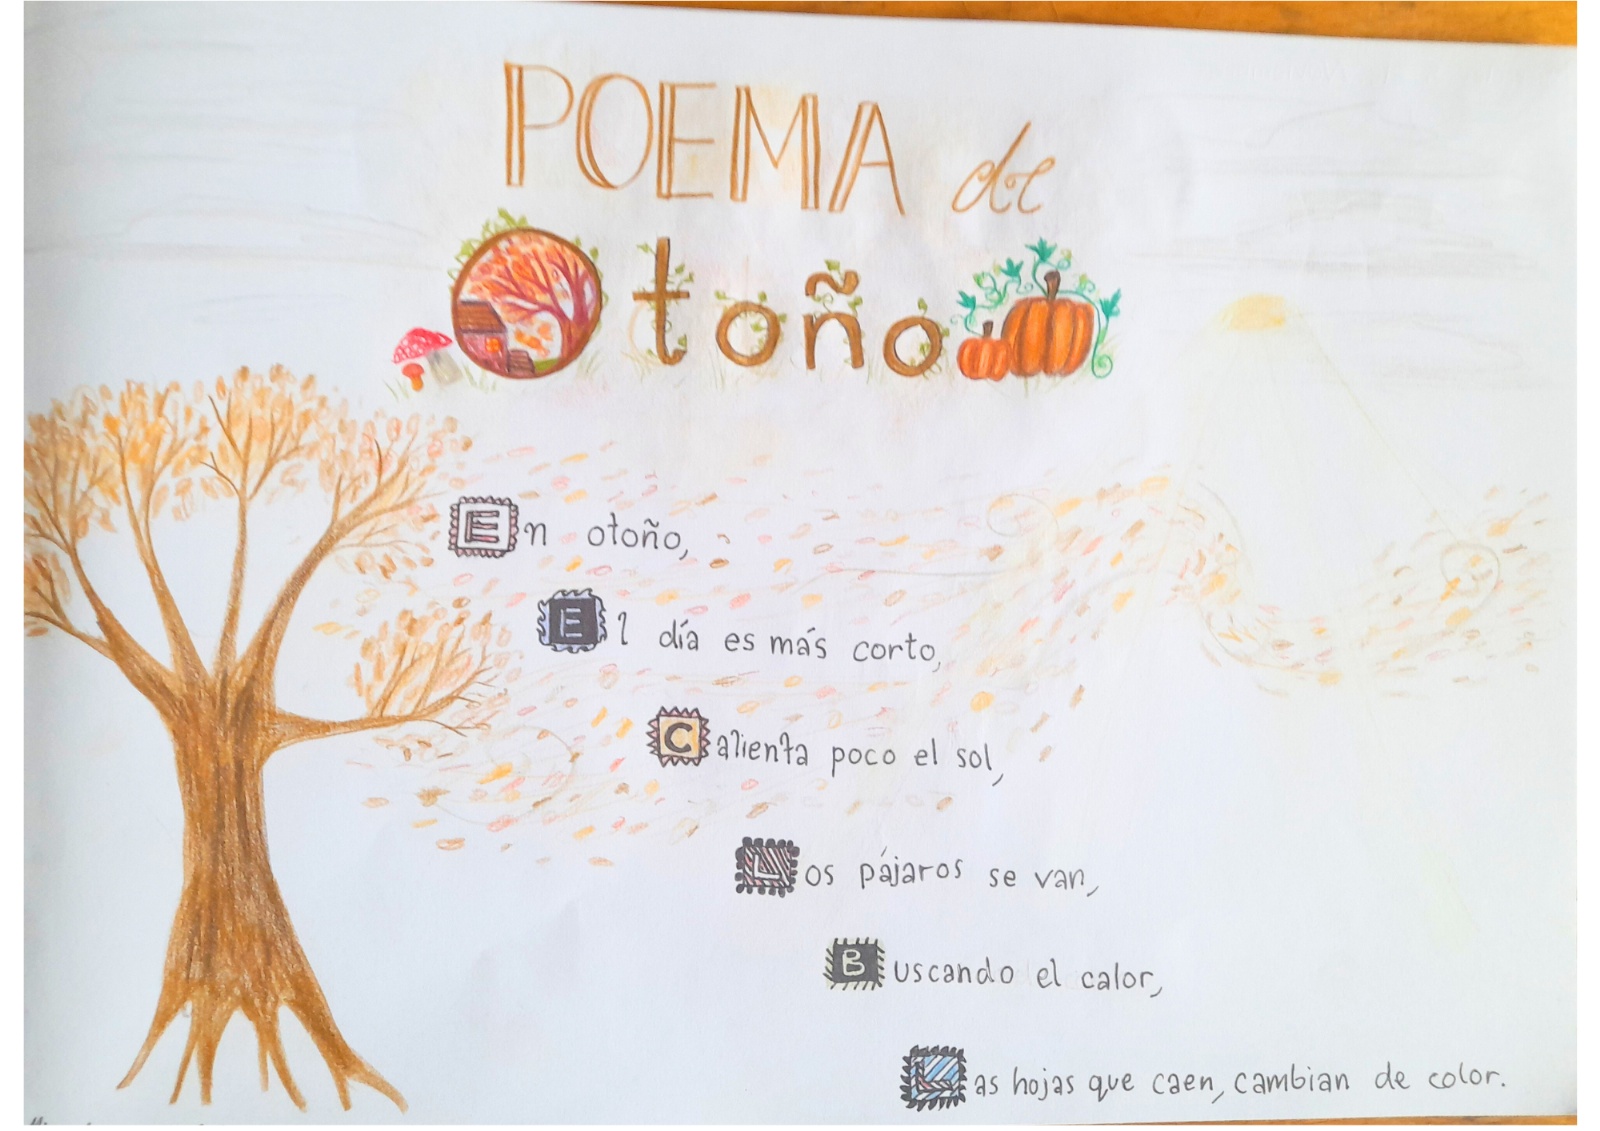 POEMA de
Otoño
En otoño,
El día es más corto,
Calienta poco el sol,
Los pájaros se van,
Buscando el calor,
Las hojas que caen, cambian de color.